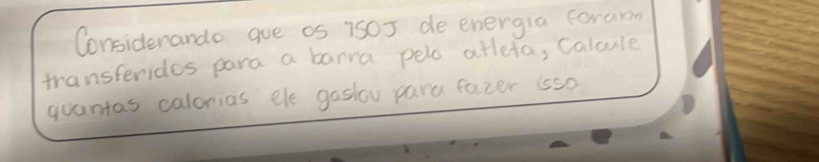 Considerando que os 750J de energia foram
transferidos para a barra pelo atleta, Calcule
quantas calorias ele gastou para fazer isso